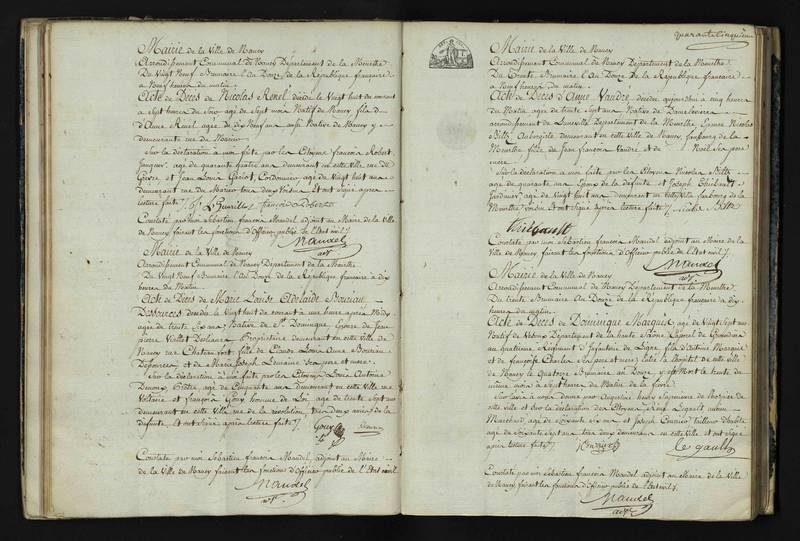 Mairie de la Ville de Nancy
Arrondissement Communal de Nancy Département de la Meurthe
Du Vingt Neuf Brumaire l'An Douze de la République française
à Neuf heures du matin.
Acte de Décès de Nicolas Renel décédé le Vingt huit du courant
à Sept heures du Soir agé de Sept mois Natif de Nancy fils d
d'Anne Renel agée de Dix Neuf ans aussi Native de Nancy y
demeurante rue de
Sur la déclaration à moi faite par les Citoyens françois Robert
agé de quarante quatre ans demeurant en cette Ville rue de
Grève et Jean Louis Cordonnier agé de Vingt huit ans
demeurant rue tous deux Voisins Et ont Signé après
lecture faite /. françois Robert
Constaté par moi Sébastien françois Mandel adjoint au Maire de la Ville
de Nancy faisant les fonctions d'Officier public de l'Etat civil /.
Mandel
adjt
Mairie de la Ville de Nancy
Arrondissement Communal de Nancy Département de la Meurthe
Du Vingt Neuf Brumaire l'An Douze de la République française à dix
heures du Matin.
Acte de Décès de Marie Louise Adelaïde
décédée le Vingt huit du courant à une heure après Midy
agée de trente Six ans Native de St. Domingue Epouse de Jean
pierre Propriétaire demeurant en cette Ville de
Nancy rue Chateau fort fille de Claude Louis Anne
et de Marie Ses père et mère.
Sur la déclaration à moi faite par les Citoyens Louis Antoine
agé de Cinquante ans demeurant en cette Ville rue
Voltaire et françois Goux homme de Loi agé de trente Sept ans
demeurant en cette Ville rue de la révolution, tous deux amis de la
défunte Et ont Signé après lecture faite /. Goux
Constaté par moi Sébastien françois Mandel, adjoint au Maire
de la Ville de Nancy faisant les fonctions d'Officier public de l'Etat civil
Mandel
adjt
quarante Cinquième
Mairie de la Ville de Nancy
Arrondissement Communal de Nancy Département de la Meurthe
Du Trente Brumaire l'An Douze de la République française
à Neuf heures du matin
Acte de Décès d'Anne Vaudré décédée aujourd'hui à cinq heures
du Matin agée de trente Sept ans Native de
arrondissement de Lunéville Département de la Meurthe, Epouse Nicolas
Aubergiste demeurant en cette Ville de Nancy, faubourg de la
Meurthe fille de Jean françois Vaudré et de Noël Ses père
mère.
Sur la déclaration à moi faite par les Citoyens Nicolas
agé de quarante ans Epoux de la défunte et Joseph
Jardinier agé de Vingt huit ans demeurant en cette Ville faubourg de la
Meurthe Voisin et ont Signé après lecture faite /.
Constaté par moi Sébastien françois Mandel adjoint au Maire de la
Ville de Nancy faisant les fonctions d'Officier public de l'Etat civil /.
Mandel
adjt
Mairie de la Ville de Nancy
Arrondissement Communal de Nancy Département de la Meurthe
Du trente Brumaire l'An Douze de la République française à dix
heures du matin
Acte de Décès de Dominique Marquis agé de Vingt Sept ans
Natif de Département de la haute Saône Caporal de Grenadiers
au quatrième Régiment d'Infanterie de Ligne fils d'Antoine Marquis
et de françoise Charles Ses père et mère, entré à l'hopital de cette ville
de Nancy le Quatorze Brumaire an Douze y est Mort le trente du
même mois à Sept heures du Matin de la fièvre.
Sur avis à nous donné par
cette Ville et Sur la déclaration des Citoyens René Legault
Marchand agé de Soixante ans et Joseph Tailleur d'habits
agé de Soixante Sept ans tous deux demeurant en cette Ville et ont Signé
après lecture faite /. Le gault
Constaté par moi Sébastien françois Mandel adjoint au Maire de la Ville
de Nancy faisant les fonctions d'Officier public de l'Etat civil /.
Mandel
adjt